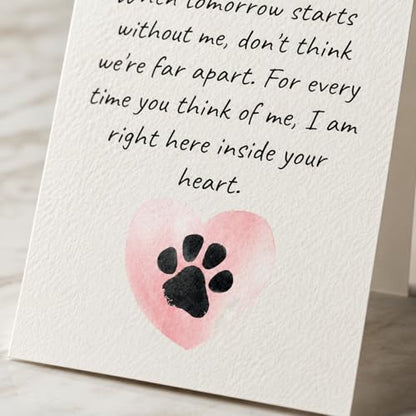 When tomorrow starts
without me, don't think
we're far apart. For every
time you think of me, I am
right here inside your
heart.